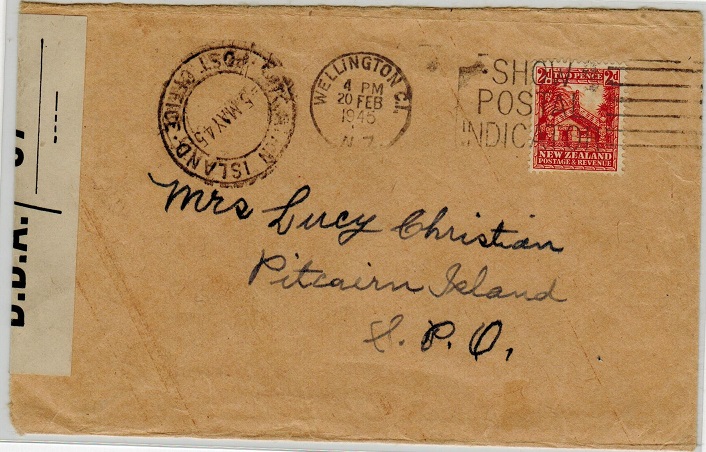 POST OFFICE
ISLAND
5 MAY 45
WELLINGTON C.1.
4 PM
20 FEB
1945
N.Z.
SHOW
POST
INDICATOR
2d TWO PENCE 2d
NEW ZEALAND
POSTAGE & REVENUE
D.D.A./
Mrs Lucy Christian
Pitcairn Island
S.P.O.